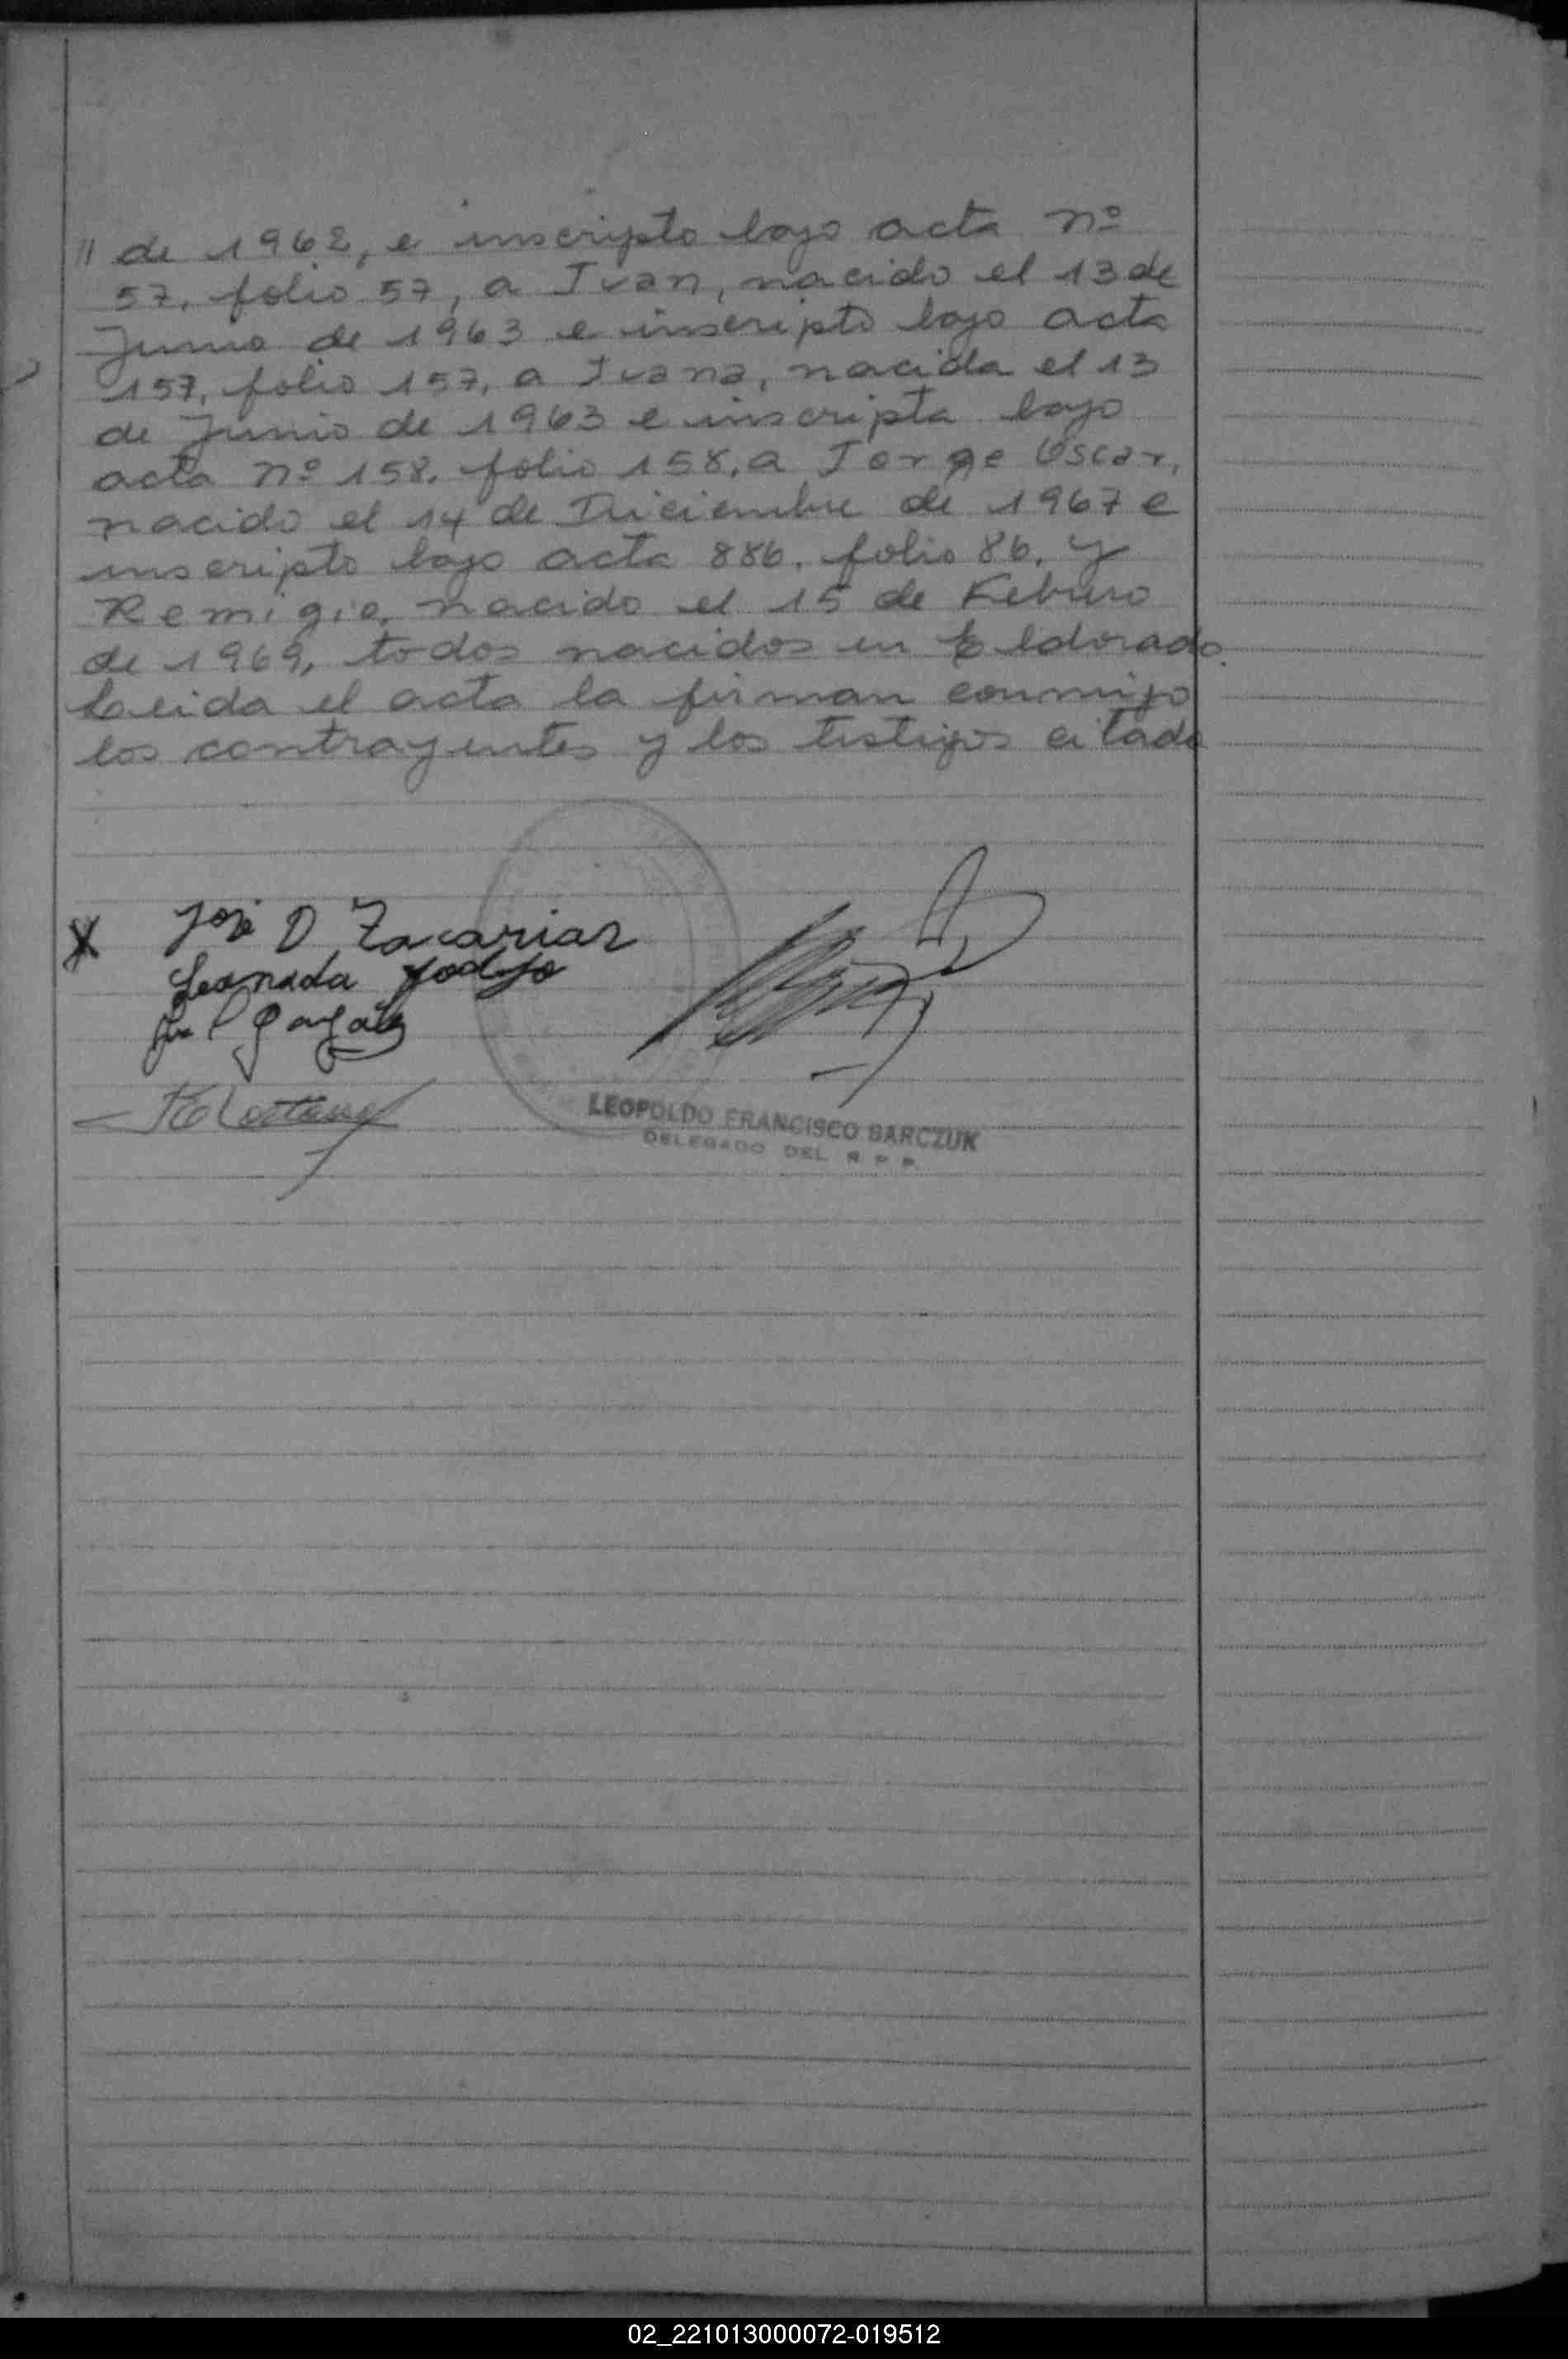 " de 1962, e inscripto bajo acta nº
57, folio 57, a Ivan, nacido el 13 de
Junio de 1963 e inscripto bajo acta
157, folio 157, a Ivana, nacida el 13
de Junio de 1963 e inscripta bajo
acta nº 158, folio 158, a Jorge Oscar,
nacido el 14 de Diciembre de 1967 e
inscripto bajo acta 886, folio 86, y
Remigio, nacido el 15 de Febrero
de 1969, todos nacidos en Eldorado.
Leida el acta la firman conmigo
los contrayentes y los testigos citado
X José D Zacarias
LEOPOLDO FRANCISCO BARCZUK
DELEGADO DEL R P P
02_221013000072-019512